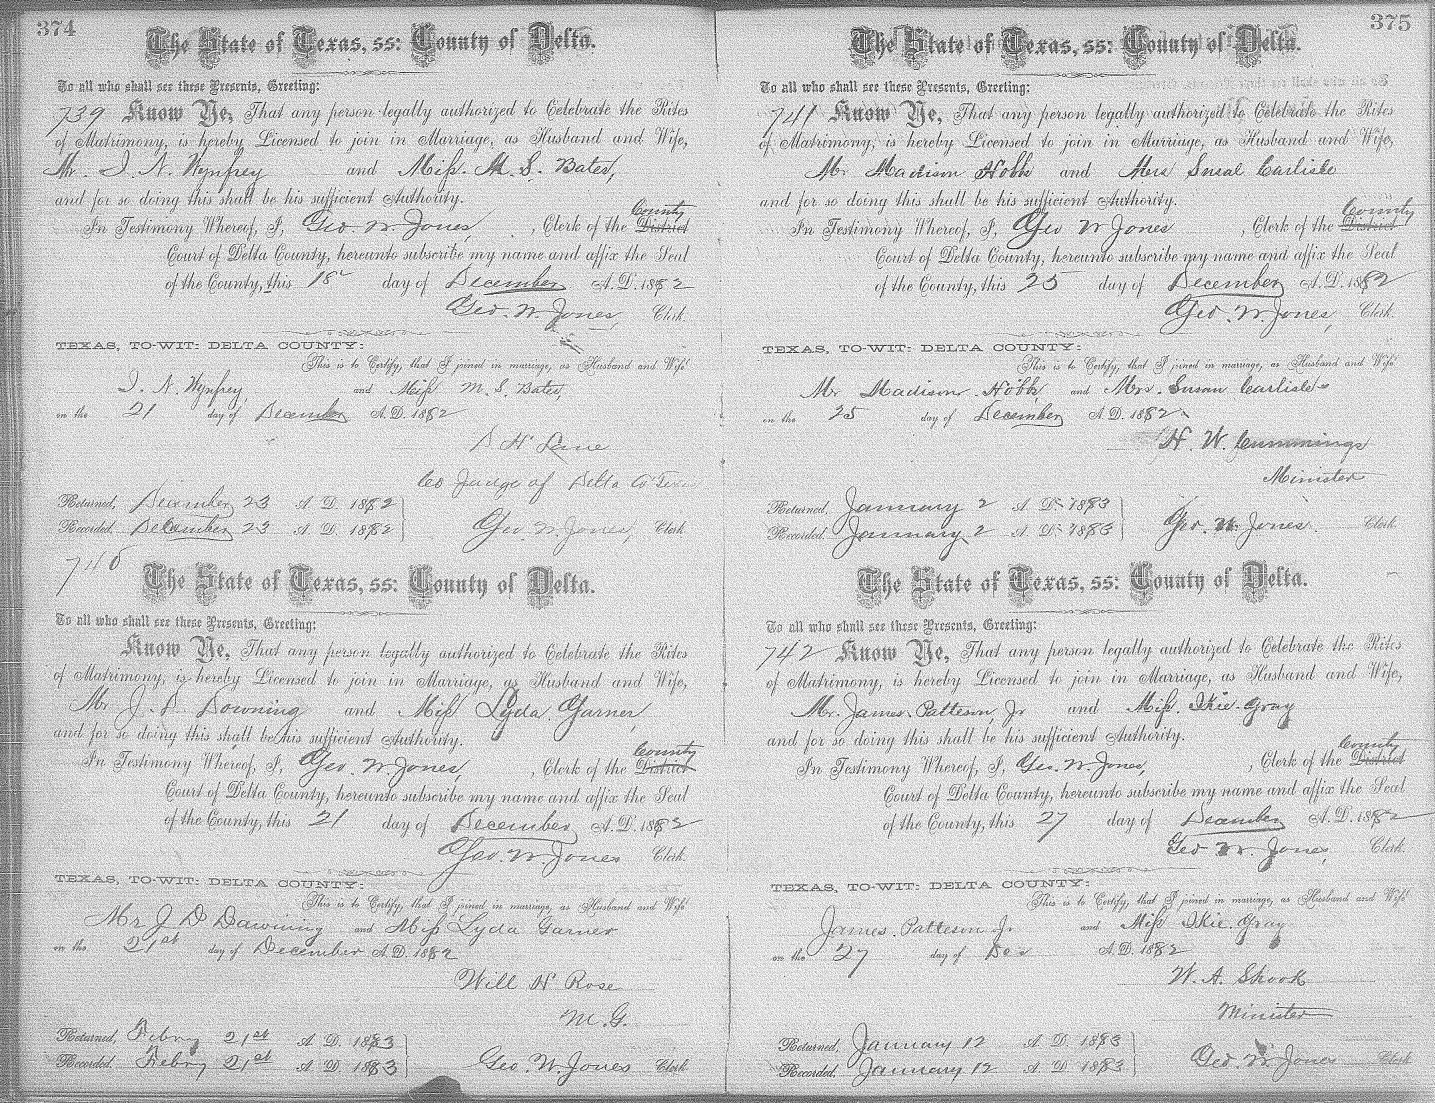 374
The State of Texas, ss: County of Delta.
To all who shall see these Presents, Greeting:
739 Know Ye, That any person legally authorized to Celebrate the Rites
of Matrimony, is hereby Licensed to join in Marriage, as Husband and Wife,
Mr. I. N. Wynfrey and Miss. M. S. Bates,
and for so doing this shall be his sufficient Authority.
County
In Testimony Whereof, I, Geo. W. Jones, , Clerk of the District
Court of Delta County, hereunto subscribe my name and affix the Seal
of the County, this 18 day of December A.D. 1882
Geo. W. Jones, Clerk.
TEXAS, TO-WIT: DELTA COUNTY:
This is to Certify, that I joined in marriage, as Husband and Wife
I. N. Wynfrey, and Miss M. S. Bates,
on the 21 day of December A.D. 1882
D H Lane
Co Judge of Delta Co Texas
Returned, December 23 A. D. 1882
Recorded, December 23 A. D. 1882 Geo W. Jones, Clerk
740
The State of Texas, ss: County of Delta.
To all who shall see these Presents, Greeting:
Know Ye, That any person legally authorized to Celebrate the Rites
of Matrimony, is hereby Licensed to join in Marriage, as Husband and Wife,
Mr J. D. Downing and Miss Lyda Garner,
and for so doing this shall be his sufficient Authority.
County
In Testimony Whereof, I, Geo. W. Jones, , Clerk of the District
Court of Delta County, hereunto subscribe my name and affix the Seal
of the County, this 21 day of December A.D. 1882
Geo. W. Jones Clerk.
TEXAS, TO-WIT: DELTA COUNTY:
This is to Certify, that I joined in marriage, as Husband and Wife
Mr J D Dawning and Miss Lyda Garner
on the 21st day of December A.D. 1882
Will H Rose
M. G.
Returned, Febry 21st A. D. 1883
Recorded, Febry 21st A. D. 1883 Geo. W. Jones Clerk
375
The State of Texas, ss: County of Delta.
To all who shall see these Presents, Greeting:
741 Know Ye, That any person legally authorized to Celebrate the Rites
of Matrimony, is hereby Licensed to join in Marriage, as Husband and Wife,
Mr Madison Hobb and Mrs Susal Carlisle
and for so doing this shall be his sufficient Authority.
County
In Testimony Whereof, I, Geo W Jones , Clerk of the District
Court of Delta County, hereunto subscribe my name and affix the Seal
of the County, this 25 day of December A.D. 1882
Geo. W Jones, Clerk.
TEXAS, TO-WIT: DELTA COUNTY:
This is to Certify, that I joined in marriage, as Husband and Wife
Mr Madison Hobb, and Mrs. Susan Carlisle
on the 25 day of December A.D. 1882
H. W. Cummings
Minister
Returned, January 2 A D. 1883
Recorded, January 2 A D. 1883 Geo. W. Jones. Clerk
The State of Texas, ss: County of Delta.
To all who shall see these Presents, Greeting:
742 Know Ye, That any person legally authorized to Celebrate the Rites
of Matrimony, is hereby Licensed to join in Marriage, as Husband and Wife,
Mr. James Patteson, Jr and Miss. Ikie Gray
and for so doing this shall be his sufficient Authority.
County
In Testimony Whereof, I, Geo. W. Jones, , Clerk of the District
Court of Delta County, hereunto subscribe my name and affix the Seal
of the County, this 27 day of December A.D. 1882
Geo W. Jones, Clerk.
TEXAS, TO-WIT: DELTA COUNTY:
This is to Certify, that I joined in marriage, as Husband and Wife
James Patteson Jr and Miss Ikie Gray
on the 27 day of Dec A.D. 1882
W. A. Shook
Minister
Returned, January 12 A. D. 1883
Recorded, January 12 A D 1883 Geo. W. Jones Clerk